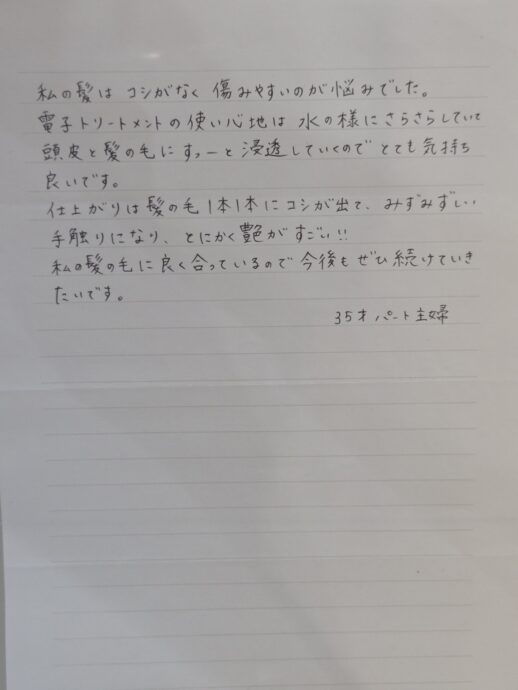 私の髪は コシがなく 傷みやすいのが悩みでした。
電子トリートメントの使い心地は 水の様にさらさらしていて
頭皮と髪の毛にすっーと浸透していくのでとても気持ち
良いです。
仕上がりは髪の毛1本1本にコシが出て、みずみずしい
手触りになり、とにかく艶がすごい!!
私の髪の毛に良く合っているので今後もぜひ続けていき
たいです。
35才パート主婦